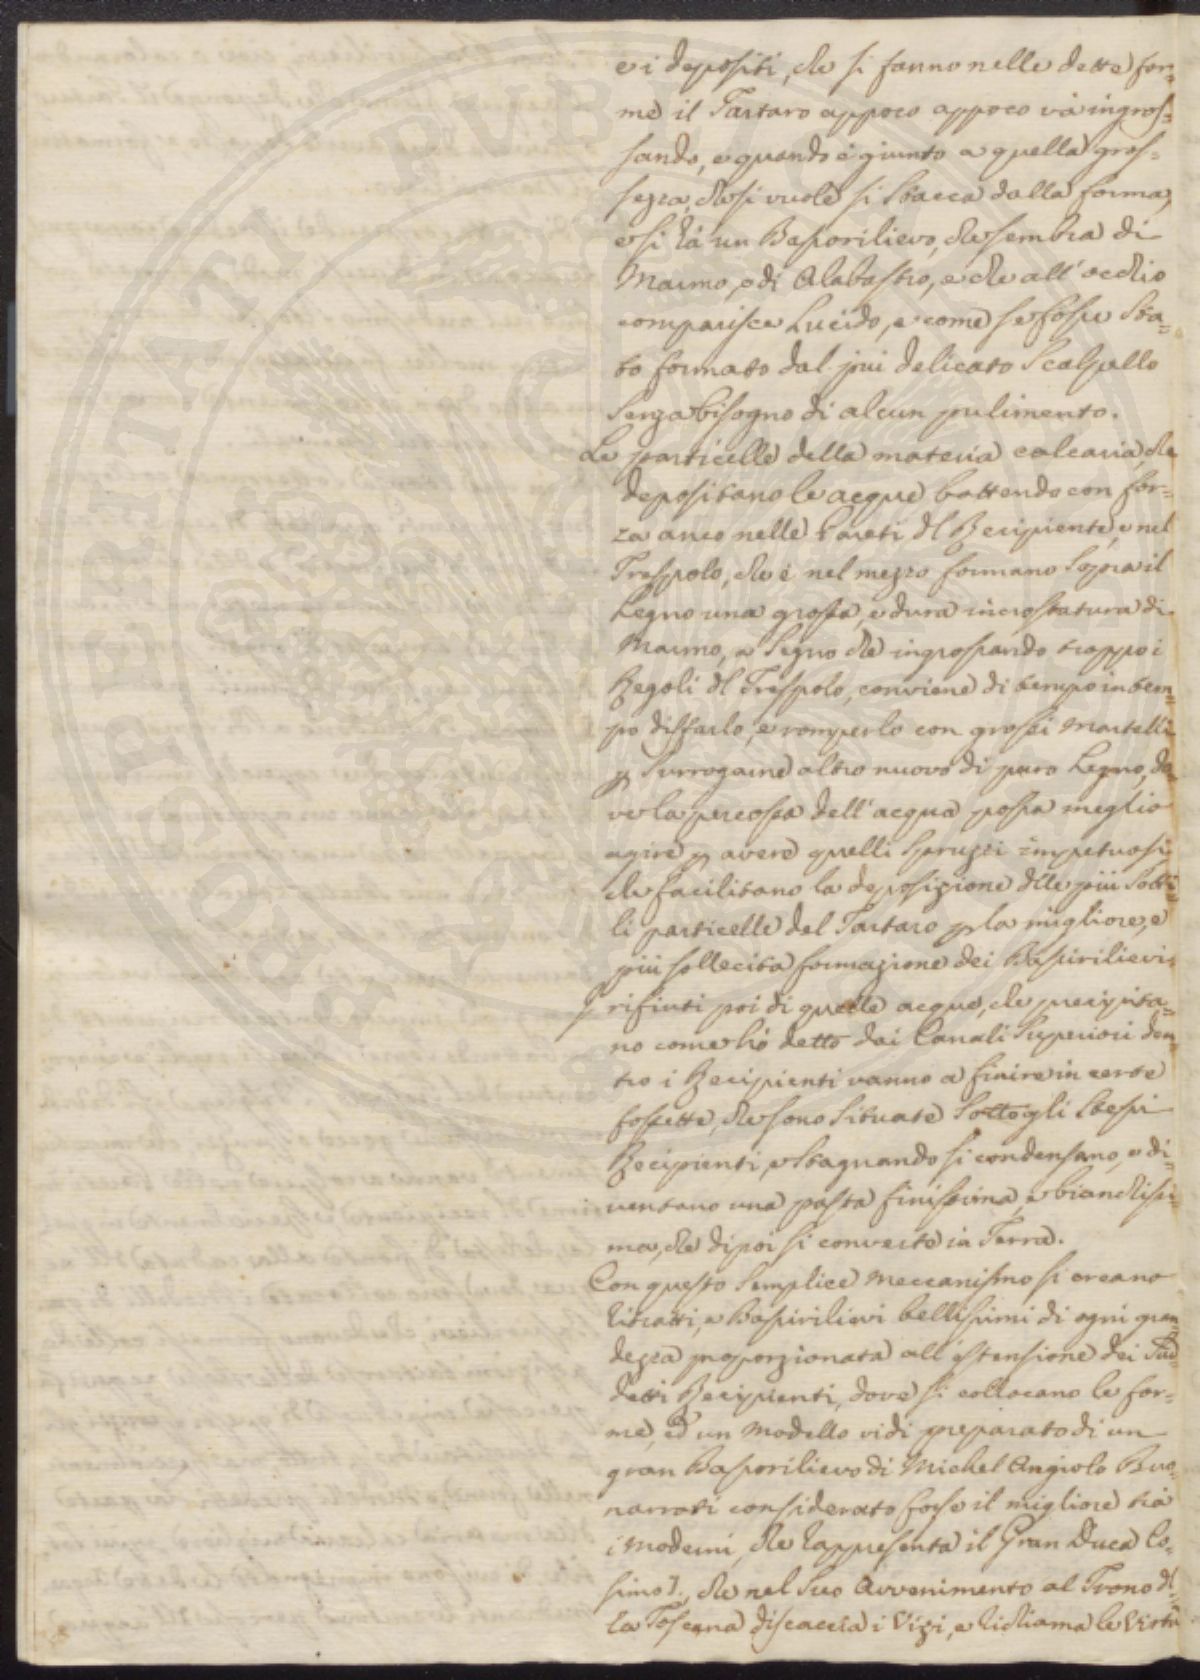 e i depositi, che si fanno nelle dette for=
me il Tartaro appoco appoco và ingros=
sando, e quando è giunto a quella gros=
sezza, che si vuole si stacca dalla forma,
e si hà un Basorilievo, che sembra di
Marmo, o di Alabastro, e che all'occhio
comparisce Lucido, e come se fosse sta=
to formato dal più delicato Scalpello
senza bisogno di alcun pulimento.
Le particelle della materia calcaria, che
depositano le acque battendo con for=
za anco nelle Pareti dl Recipiente, e nel
Trespolo, che è nel mezzo formano sopra il
Legno una grossa, e dura incrostatura di
Marmo, a segno che ingrossando troppo i
Regoli dl Trespolo, conviene di tempo in tem=
po disfarlo, e romperlo con grossi Martelli
p Surrogarne altro nuovo di puro Legno, do
ve la percossa dell'acqua possa meglio
agire p avere quelli spruzzi impetuosi
che facilitano la deposizione dlle più sotti
li particelle del Tartaro p la migliore, e
più sollecita formazione dei Bassirilievi.
I rifiuti poi di quelle acque, che precipita=
no come hò detto dai Canali Superiori den
tro i Recipienti vanno a finire in certe
fossette, che sono situate sotto gli stessi
Recipienti, e stagnando si condensano, e di=
ventano una pasta finissima, e bianchissi=
ma, che dipoi si converte in Terra.
Con questo semplice Meccanismo si creano
Ritratti, e Bassirilievi bellissimi di ogni gran
dezza proporzionata all'estensione dei Sud
detti Recipienti, dove si collocano le for=
me, ed un Modello vidi preparato di un
gran Basorilievo di Michel Angiolo Buo
narroti considerato forse il migliore trà
i Moderni, che rappresenta il Gran Duca Co=
simo I., che nel suo Avvenimento al Trono dl=
la Toscana discaccia i Vizi, e richiama le Virtù
PERITATI PUBLICAE